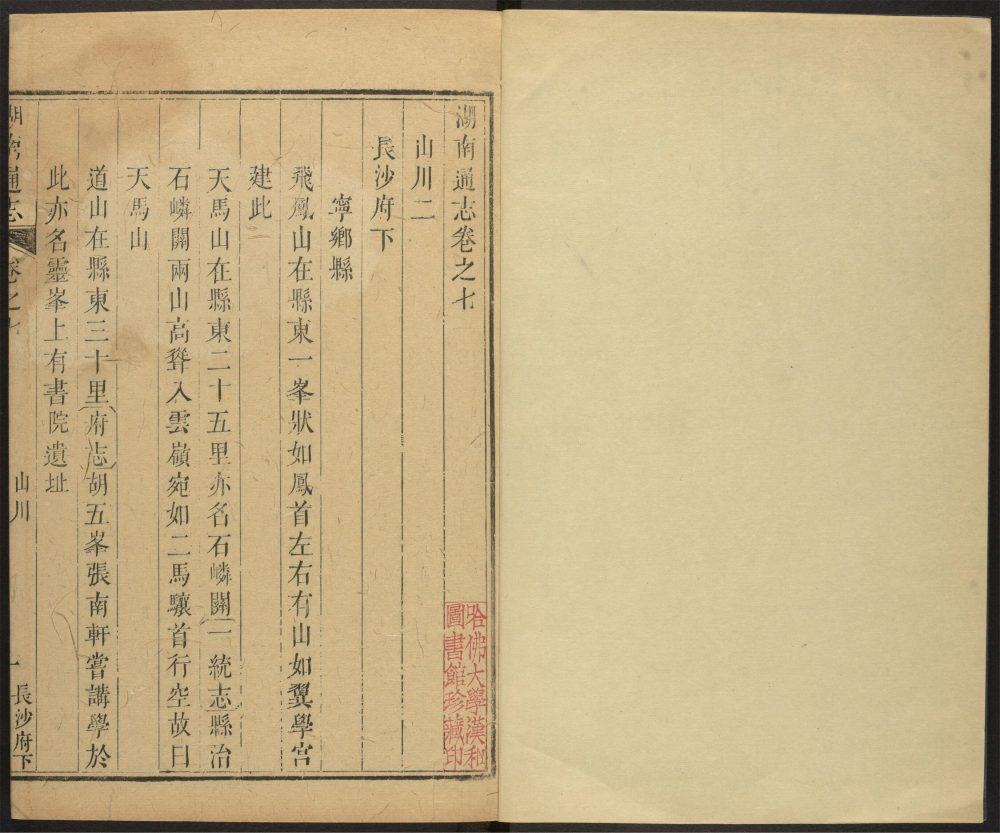 湖南通志卷之七
山川二
長沙府下
寧鄉縣
飛鳳山在縣東一峯狀如鳳首左右有山如翼學宮
建此
天馬山在縣東二十五里亦名石嶙關一統志縣治
石嶙關兩山高聳入雲嶺宛如二馬驤首行空故曰
天馬山
道山在縣東三十里府志胡五峯張南軒嘗講學於
此亦名靈峯上有書院遺址
湖南通志 卷之七 山川 一 長沙府下
哈佛大學漢和
圖書館珍藏印